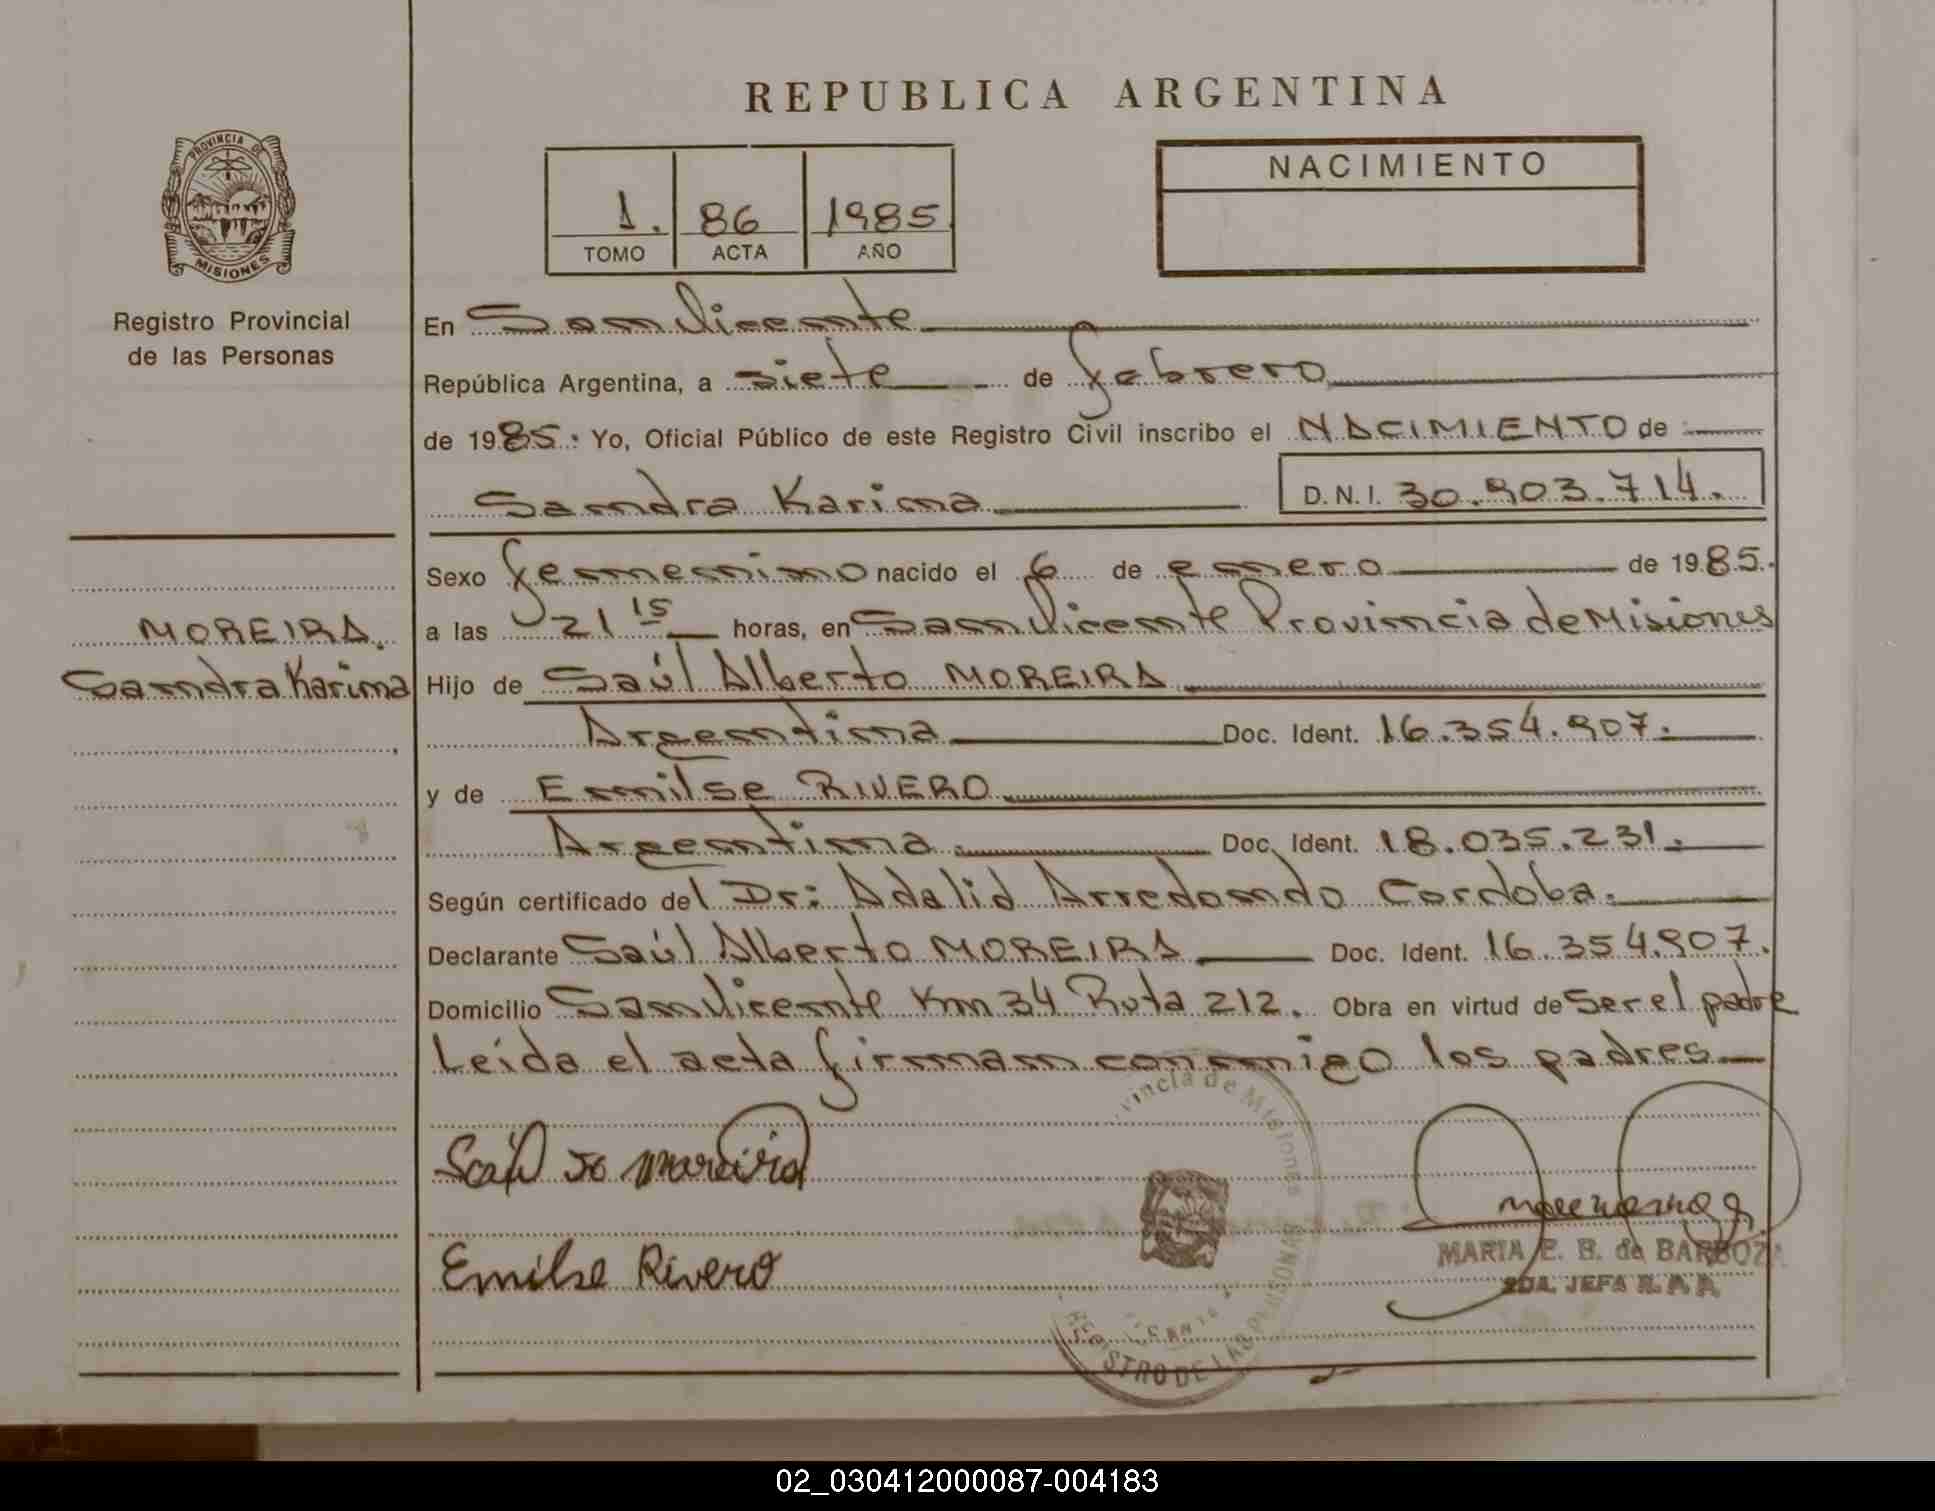 REPUBLICA ARGENTINA
PROVINCIA DE
MISIONES
Registro Provincial
de las Personas
1. 86 1985
TOMO ACTA AÑO
NACIMIENTO
En San Vicente
República Argentina, a siete de febrero
de 1985. Yo, Oficial Público de este Registro Civil inscribo el NACIMIENTO de
Sandra Karina D.N.I. 30.903.714.
MOREIRA.
Sandra Karina
Sexo femenino nacido el 6 de enero de 1985.
a las 21 15 horas, en San Vicente Provincia de Misiones
Hijo de Saúl Alberto MOREIRA
Argentina Doc. Ident. 16.354.907.
y de Emilse RIVERO
Argentina. Doc. Ident. 18.035.231.
Según certificado del Dr: Adalid Arredondo Cordoba.
Declarante Saúl Alberto MOREIRA Doc. Ident. 16.354.907.
Domicilio San Vicente Km 34 Ruta 212. Obra en virtud de Ser el padre
Leida el acta firman conmigo los padres
Saúl Moreira
Emilse Rivero
vincia de Misiones
REGISTRO DE LAS PERSONAS
MARIA E. B. de BARBOZA
2DA. JEFA R.
02_030412000087-004183